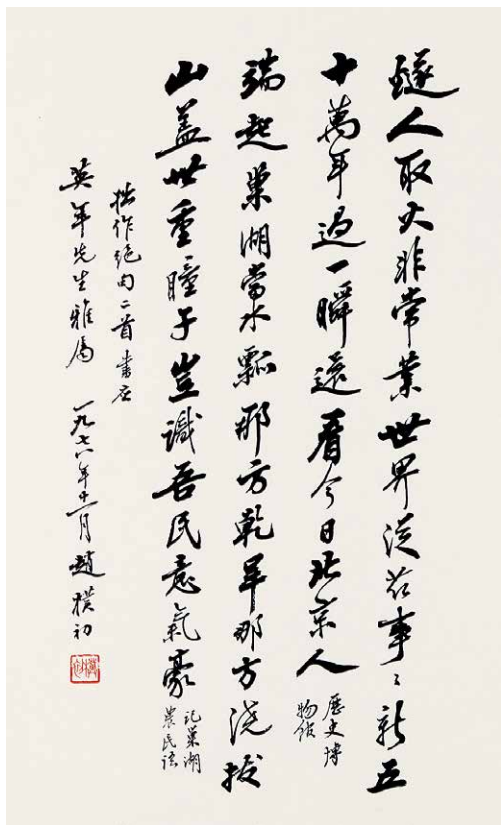 燧人取火非常業世界從茲事〻新五
十萬年過一瞬遠看今日北京人
歷史博
物館
端起巢湖當水瓢那方乾旱那方澆拔
山蓋世重瞳子豈識吾民意氣豪
記巢湖
農民語
拙作絕句二首書應
英年先生雅屬 一九七八年十一月 趙樸初